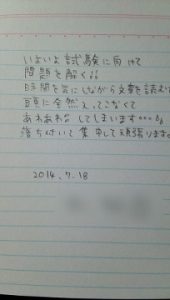 いよいよ試験に向けて
問題を解く。。
時間を気にしながら文章を読む
頭に全然入ってこなくて
あれあれな してしまいます。。。
落ち付いて 集中して頑張ります。
2014.9.18